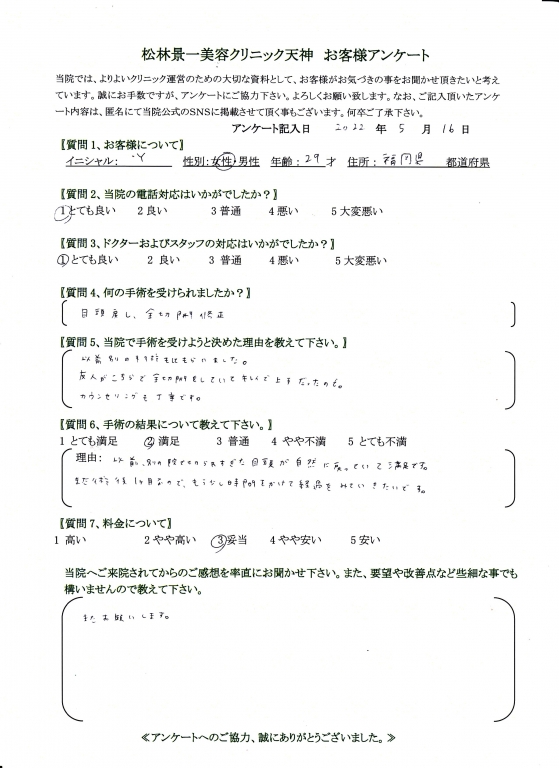 松林景一美容クリニック天神　お客様アンケート
当院では、よりよいクリニック運営のための大切な資料として、お客様がお気づきの事をお聞かせ頂きたいと考え
ています。誠にお手数ですが、アンケートにご協力下さい。よろしくお願い致します。なお、ご記入頂いたアンケ
ート内容は、匿名にて当院公式のSNSに掲載させて頂く事もございます。何卒ご了承下さい。
アンケート記入日　2022 年 5 月 16 日
【質問1、お客様について】
イニシャル： Y 性別：女性・男性 年齢：29才 住所：福岡県 都道府県
【質問2、当院の電話対応はいかがでしたか？】
1とても良い 2良い 3普通 4悪い 5大変悪い
【質問3、ドクターおよびスタッフの対応はいかがでしたか？】
1とても良い 2 良い 3 普通 4悪い 5大変悪い
【質問4、何の手術を受けられましたか？】
目頭戻し、全切開修正
【質問5、当院で手術を受けようと決めた理由を教えて下さい。】
以前別の手術をしてもらいました。
友人がこちらで全切開をしていて
カウンセリングも丁寧です。
【質問6、手術の結果について教えて下さい。】
1 とても満足 2 満足 3 普通 4 やや不満 5 とても不満
理由： 以前、別の院で切られすぎた目頭が自然に戻っていて満足です。
まだ術後1ヶ月なので、もう少し時間をかけて経過をみていきたいです。
【質問7、料金について】
1 高い 2やや高い 3妥当 4やや安い 5安い
当院へご来院されてからのご感想を率直にお聞かせ下さい。また、要望や改善点など些細な事でも
構いませんので教えて下さい。
またお願いします。
≪アンケートへのご協力、誠にありがとうございました。≫